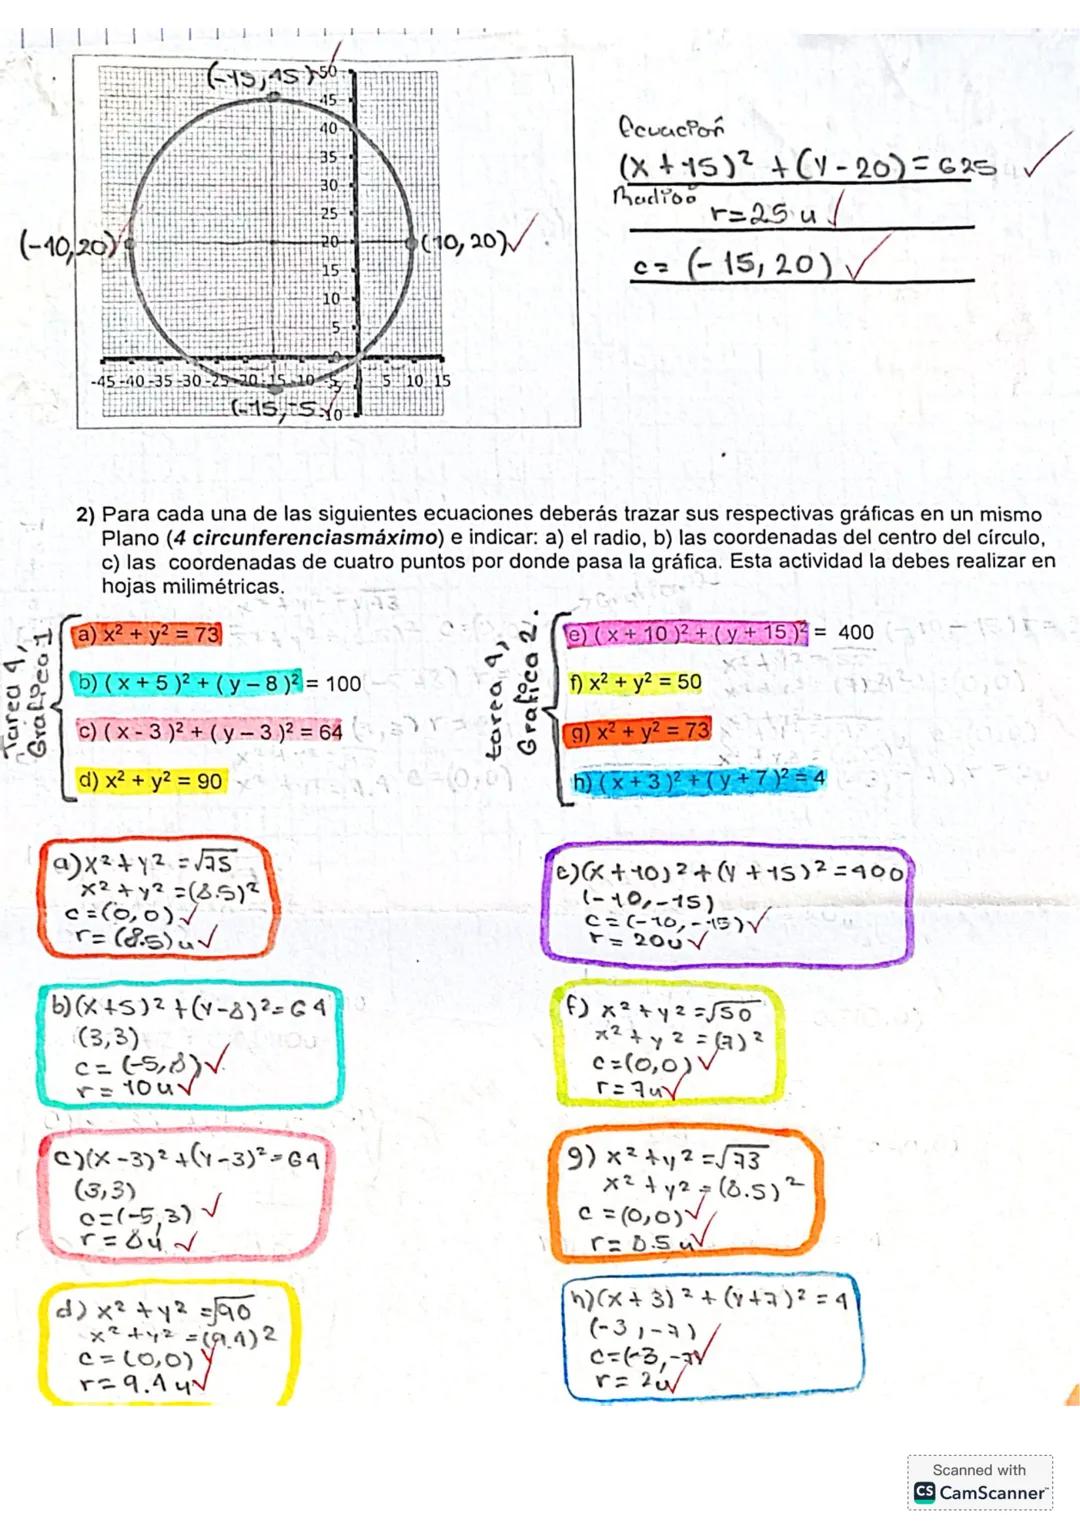 (-15,45)
50
45
40
35
30
25
(-40,20)
20
(10,20)
15
10
5
0
-45 -40 -35 -30 -25 -20 -15 -10 -5 5 10 15
(-15,-5)
10
Ecuación
(x + 15)² + (y - 20) = 625
Radio:
r = 25 u
c = (-15, 20)
2) Para cada una de las siguientes ecuaciones deberás trazar sus respectivas gráficas en un mismo
Plano (4 circunferenciasmáximo) e indicar: a) el radio, b) las coordenadas del centro del círculo,
c) las coordenadas de cuatro puntos por donde pasa la gráfica. Esta actividad la debes realizar en
hojas milimétricas.
Tarea 4,
Gráfica 1
a) x² + y² = 73
b) ( x + 5 )² + ( y – 8 )² = 100
c) ( x - 3 )² + ( y – 3 )² = 64
d) x² + y² = 90
tarea 4,
Grafica 2.
e) ( x + 10 )² + ( y + 15 )² = 400
f) x² + y² = 50
g) x² + y² = 73
h) ( x + 3 )² + ( y + 7 )² = 4
a) x² + y² = √75
x² + y² = (8.5)²
c = (0,0)
r = (8.5) u
b) (x+5)² + (y-8)² = 64
(3,3)
c = (-5,8)
r = 10 u
c) (x-3)² + (y-3)² = 64
(3,3)
c = (-5,3)
r = 8u
d) x² + y² = √90
x² + y² = (9.4)²
c = (0,0)
r = 9.4 u
e) (x+10)² + (y+15)² = 400
(-10,-15)
c = (-10,-15)
r = 20u
f) x² + y² = √50
x² + y² = (7)²
c = (0,0)
r = 7u
g) x² + y² = √73
x² + y² = (8.5)²
c = (0,0)
r = 8.5 u
h) (x+3)² + (y+7)² = 4
(-3,-7)
c = (-3,-7)
r = 2u
Scanned with
CS CamScanner